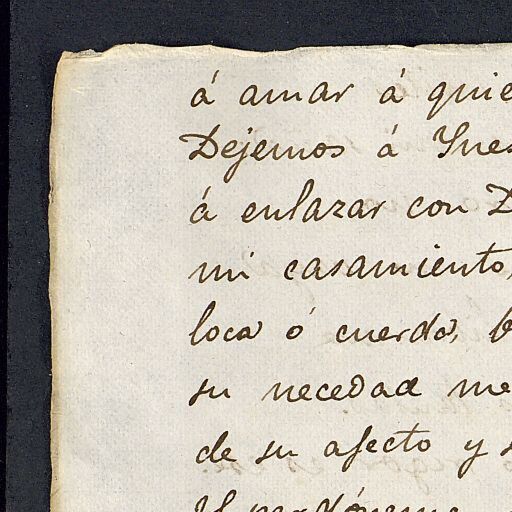 á amar á quie
Dejemos á Ynes
á enlazar con D
mi casamiento,
loca ó cuerda, b
su necedad me
de su afecto y s
Y perdóneme